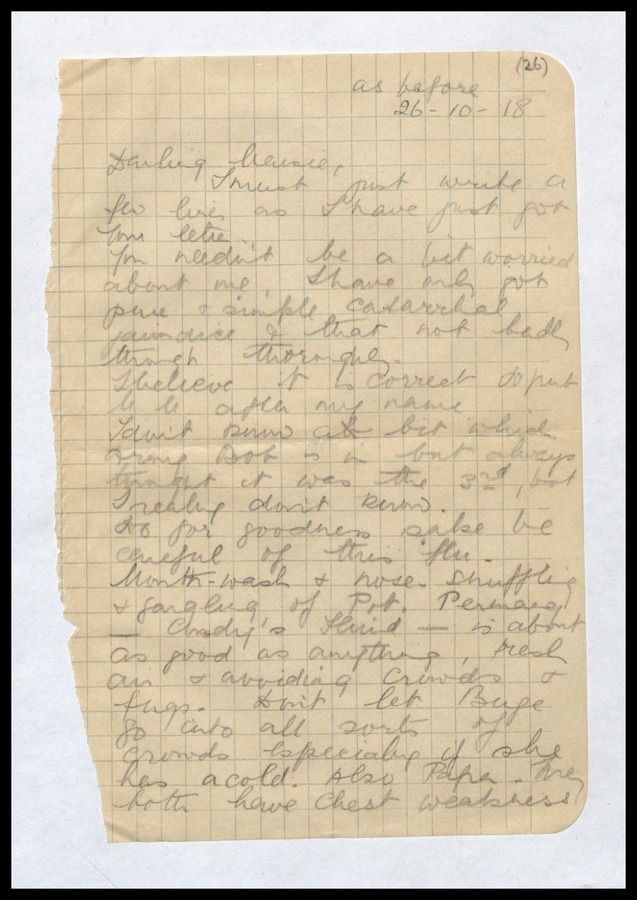 (26)
as before
26-10-18
Darling
I must just write a
few lines as I have just got
your letter
You needn't be a bit worried
about me, I have only got
pure & simple catarrhal
jaundice & that not badly
though thoroughly.
I believe it is correct to put
after my name
I don't know a bit which
Army Bob is in but always
thought it was the 3rd, but
I really don't know.
Do for goodness sake be
careful of this flu.
Mouth-wash & nose-snuffling
& gargling of Pot. Permang
— Condy's Fluid — is about
as good as anything, fresh
air & avoiding crowds &
fugs. Don't let Buge
go into all sorts of
crowds especially if she
has a cold. Also Papa. They
both have chest weakness